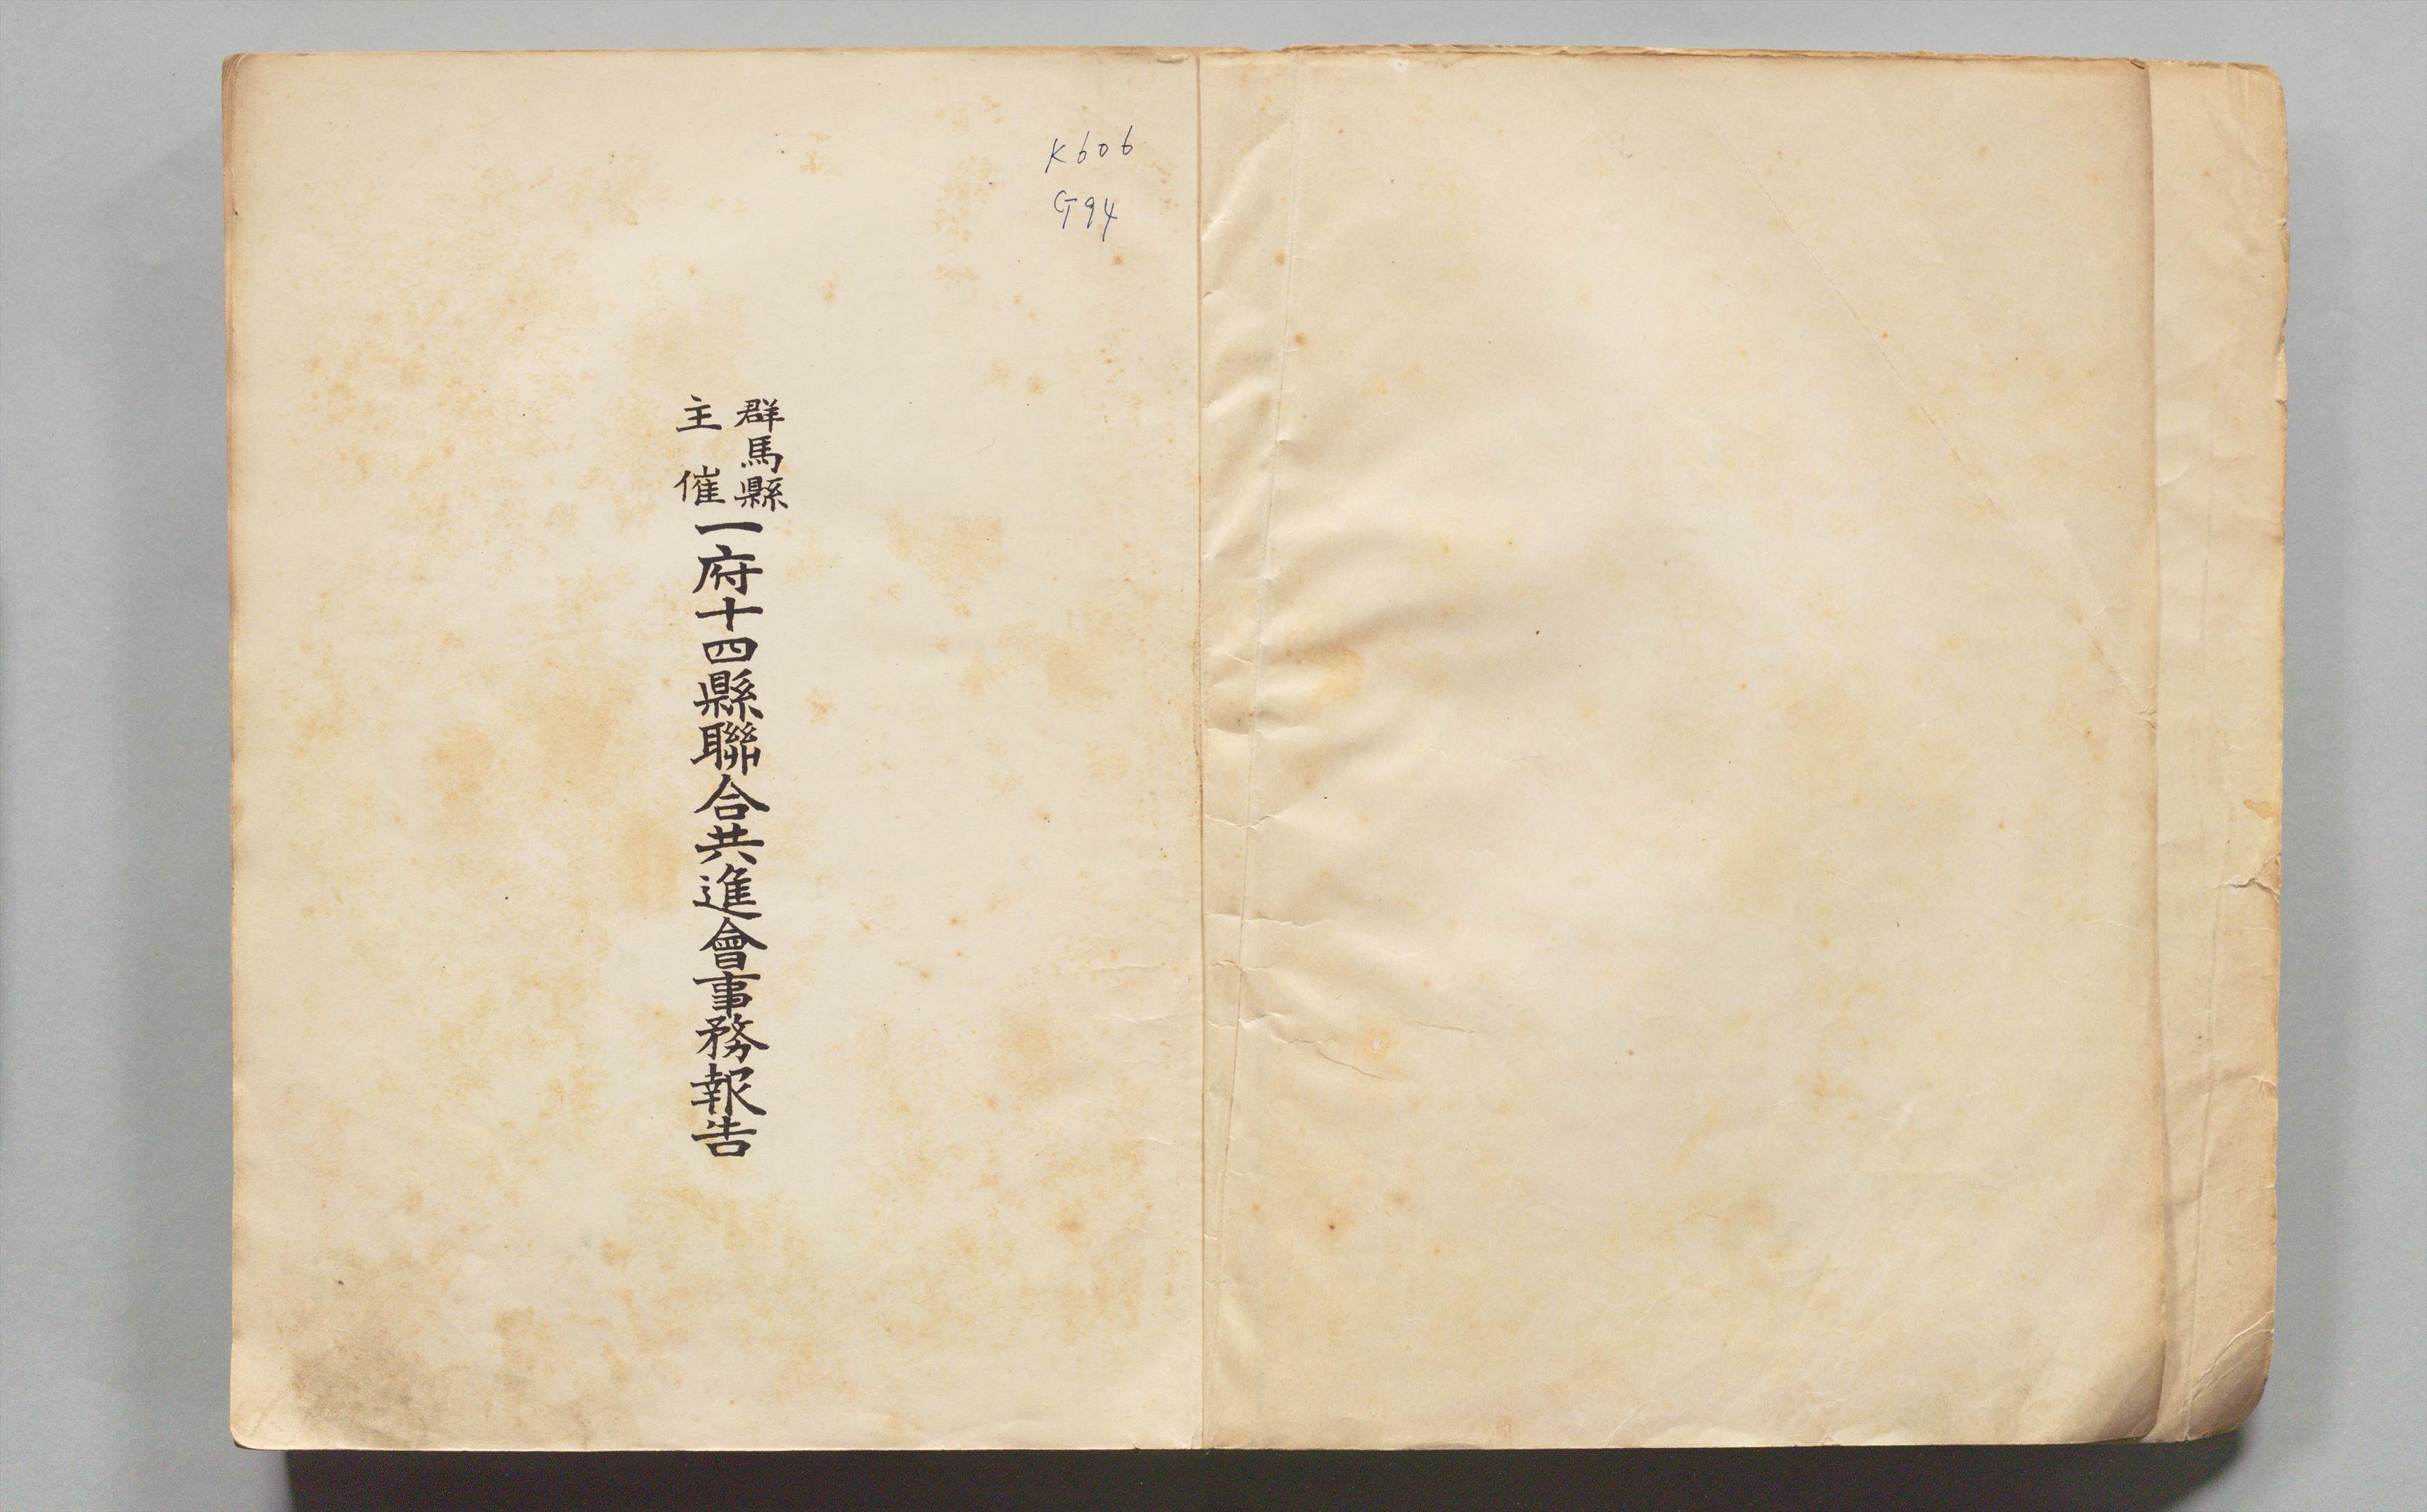 K606
G94
群馬縣
主催
一府十四縣聯合共進會事務報告